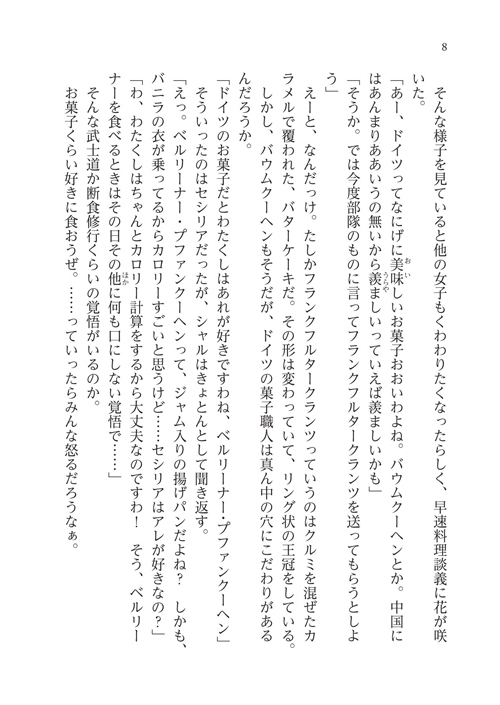 8
そんな様子を見ていると他の女子もくわわりたくなったらしく、早速料理談義に花が咲
いた。
「あー、ドイツってなにげに美味しいお菓子おおいわよね。バウムクーヘンとか。中国に
はあんまりああいうの無いから羨ましいっていえば羨ましいかも」
「そうか。では今度部隊のものに言ってフランクフルタークランツを送ってもらうとしよ
う」
えーと、なんだっけ。たしかフランクフルタークランツっていうのはクルミを混ぜたカ
ラメルで覆われた、バターケーキだ。その形は変わっていて、リング状の王冠をしている。
しかし、バウムクーヘンもそうだが、ドイツの菓子職人は真ん中の穴にこだわりがある
んだろうか。
「ドイツのお菓子だとわたくしはあれが好きですわね、ベルリーナー・プファンクーヘン」
そういったのはセシリアだったが、シャルはきょとんとして聞き返す。
「えっ。ベルリーナー・プファンクーヘンって、ジャム入りの揚げパンだよね？　しかも、
バニラの衣が乗ってるからカロリーすごいと思うけど……セシリアはアレが好きなの？」
「わ、わたくしはちゃんとカロリー計算をするから大丈夫なのですわ！　そう、ベルリー
ナーを食べるときはその日その他に何も口にしない覚悟で……」
そんな武士道か断食修行くらいの覚悟がいるのか。
お菓子くらい好きに食おうぜ。……っていったらみんな怒るだろうなぁ。